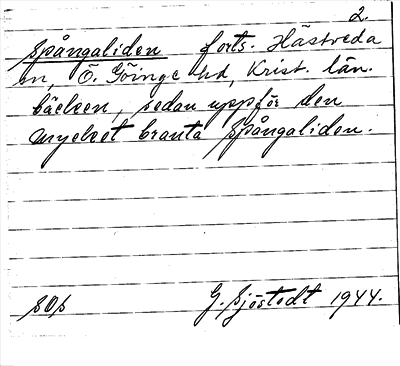 2.
Spångaliden forts. Hästveda
sn, Ö. Göinge hd, Krist. län.
bäcken, sedan uppför den
mycket branta Spångaliden.
SOS G. Sjöstedt 1944.